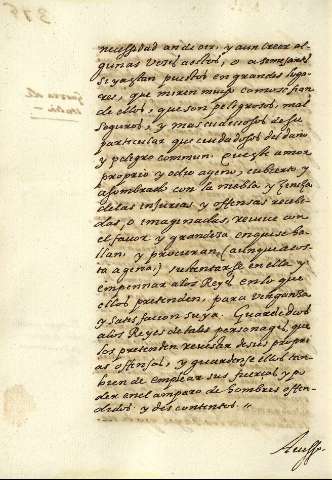 necessidad an de oir, y aun creer al
gunas vezes a estos, o a semejantes
si ya estan puestos en grandes luga
res, que miren muy como se fian
de ellos, que son peligrosos, mal
seguros, y mas cuidadosos de su
particular que cuidadosos del daño
y peligro commun. Que este amor
proprio y odio ageno, cubierto y
asombrado con la niebla y
de las injurias y offensas recebi
das, o imaginadas, revive con
el favor y grandeza en que se ha
llan, y procuran (aunque a cos
ta agena) sustentarse en ella y
empennar a los Reyes en lo que
ellos pretenden, para venganza
y satisfacion suya. Guarde dios
a los Reyes de tales personages, que
los pretenden revestir de sus propri
as offensas, y guardense ellos tan
bien de emplear sus fuerças y po
der en el amparo de hombres offen
didos y descontentos